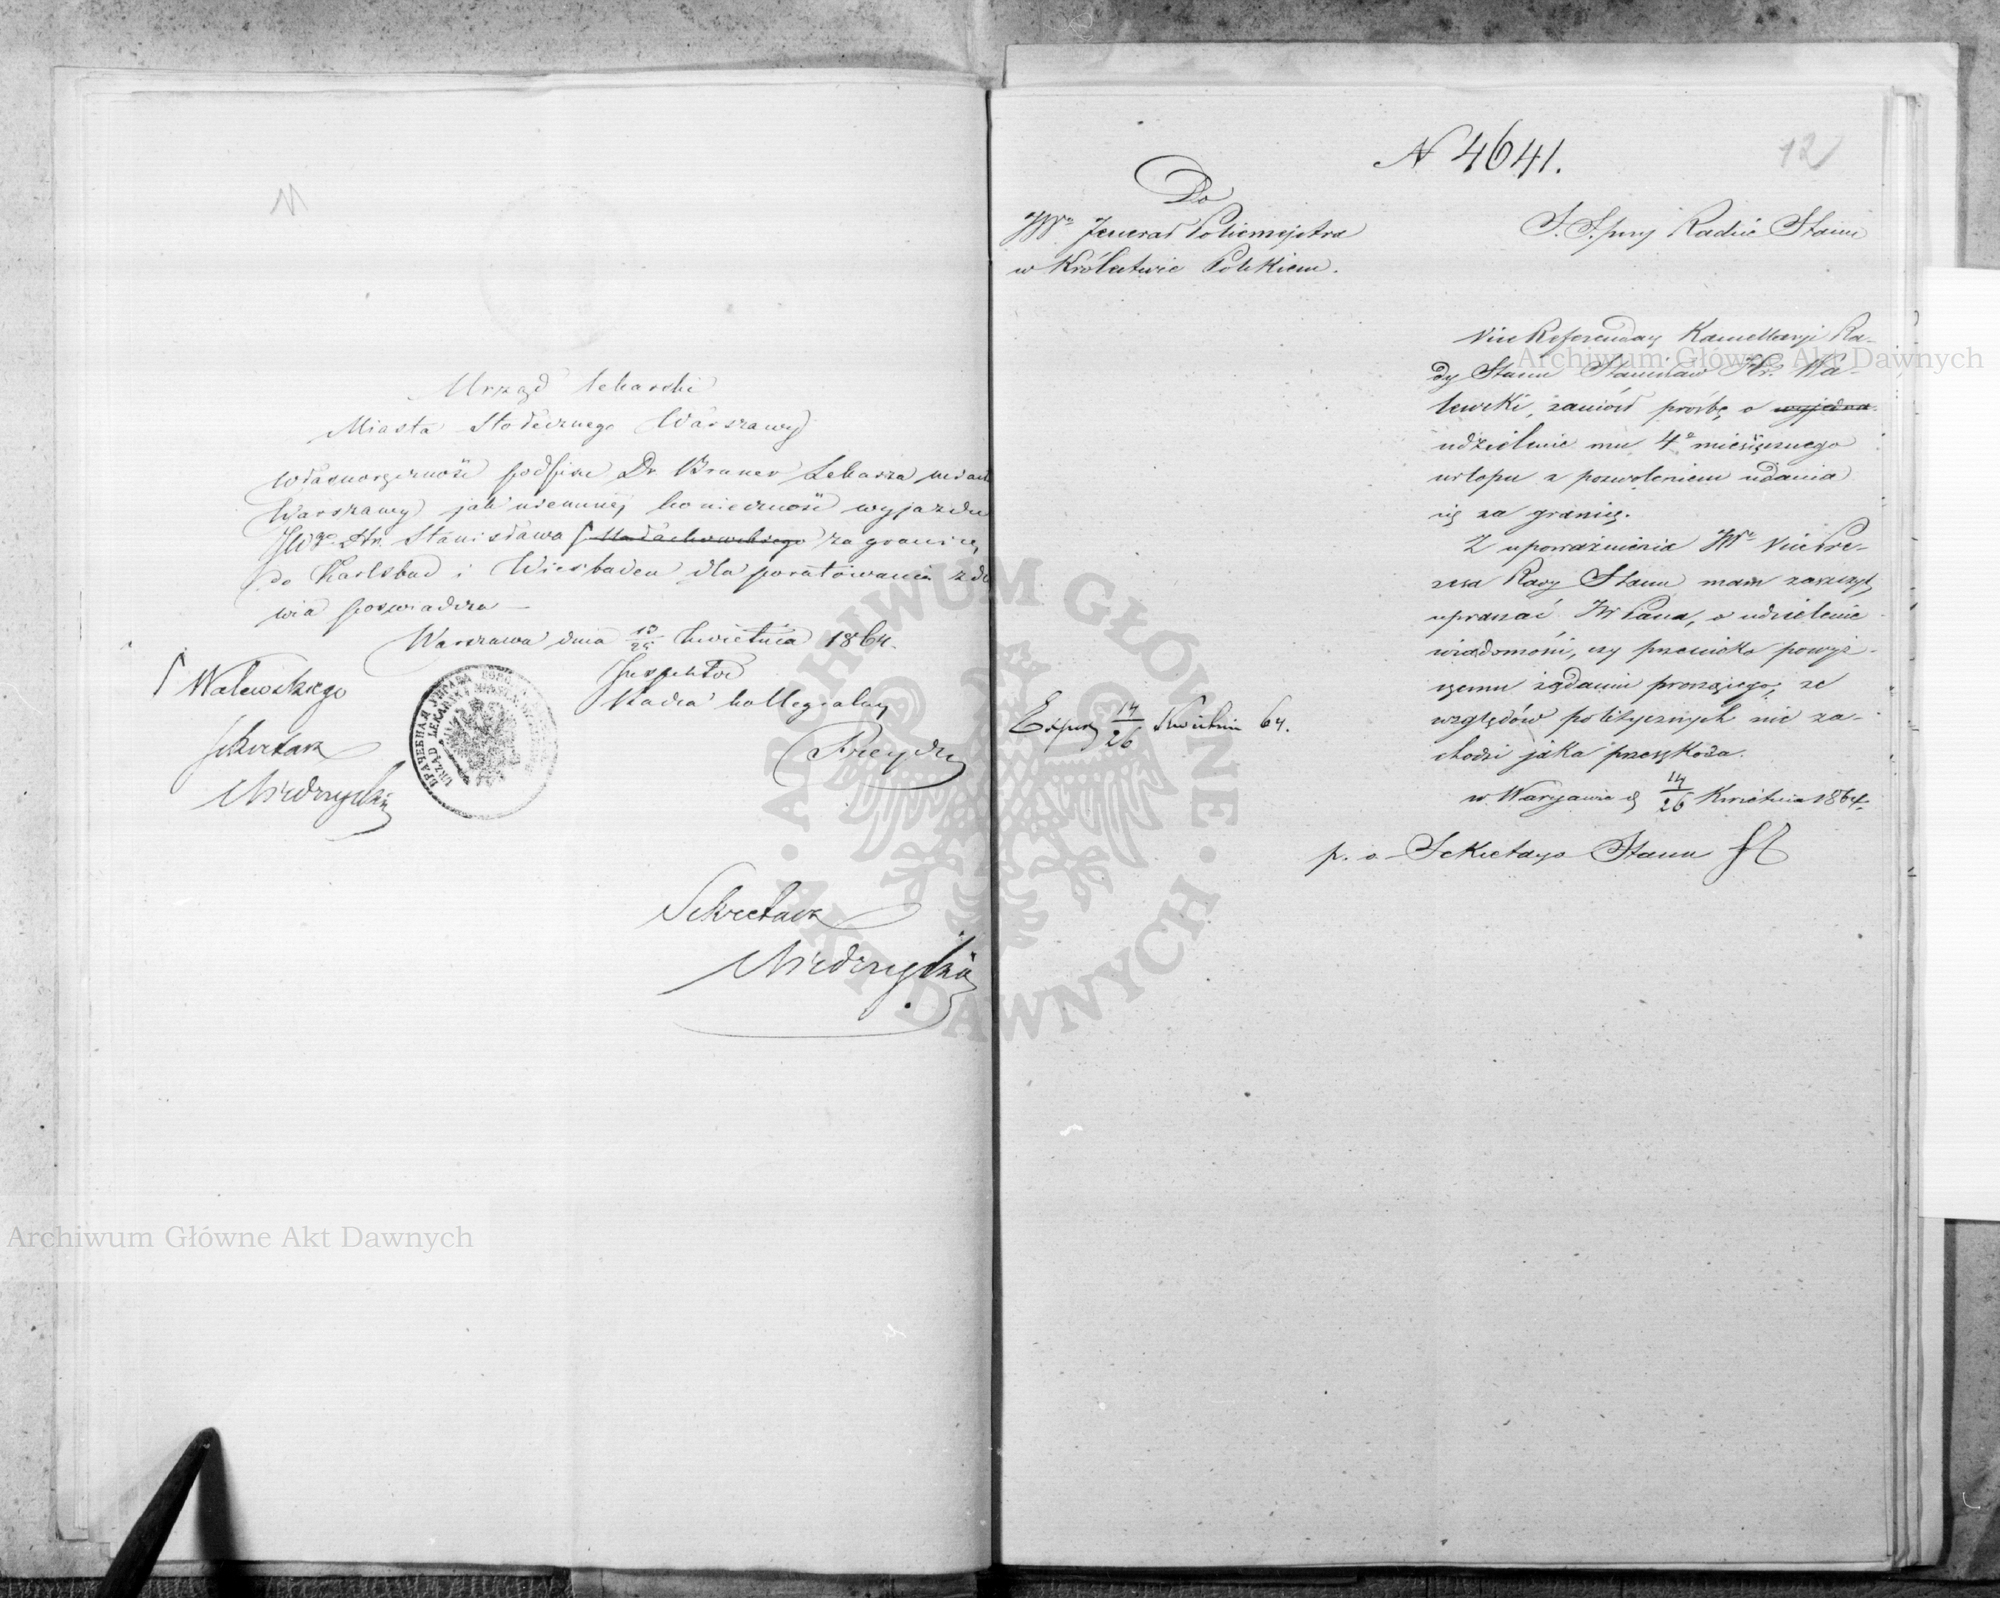 Urząd Lekarski
Miasta Stołecznego Warszawy
Własnoręczność podpisu Dr Bruner Lekarza miasta
Warszawy jak niemniej konieczność wyjazdu
JWgo Hr. Stanisława Małachowskiego za granicę,
do Karlsbad i Wiesbaden dla poratowania zdro
wia poswiadcza —
Warszawa dnia 13/25 kwietnia 1864.
Walewskiego
Inspektor
Radca kollegialny
Sekretarz
ВРАЧЕБНАЯ УПРАВА
URZĄD LEKARSKI
Sekretarz
Archiwum Główne Akt Dawnych
N 4641.
12
Do
JWo Jenerał Policmejstra
w Królestwie Polskiem.
Radzie Stanu
Vice Referendarz Kancellaryi Ra-
dy Stanu Stanisław Hr. Wa-
lewski, zaniósł prośbę o wyjedna
udzielenie mu 4o miesięcznego
urlopu z pozwoleniem udania
się za granicę.
Z upoważnienia JWo Vice Pre-
zesa Rady Stanu mam zaszczyt
upraszać JW Pana, o udzielenie
wiadomości, czy przeciwko powyż-
szemu żądaniu proszącego, ze
względów politycznych nie za-
chodzi jaka przeszkoda.
w Warszawie d 14/26 Kwietnia 1864.
Exped 14/26 Kwietnia 64.
p. o. Sekretarza Stanu
Archiwum Główne Akt Dawnych
ARCHIWUM GŁÓWNE · AKT DAWNYCH ·